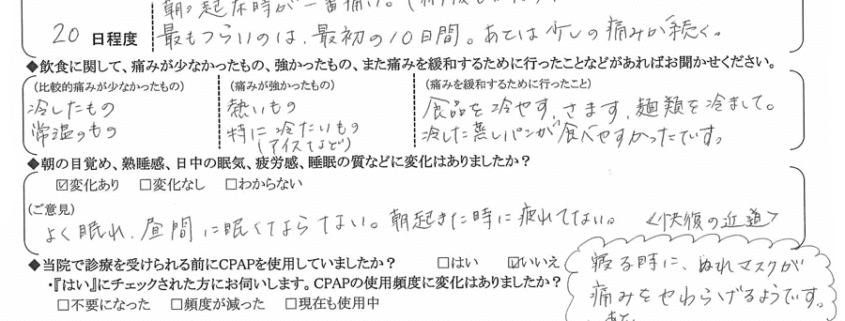 朝の起床時が一番痛い。
20 日程度
最もつらいのは、最初の10日間。あとは少しの痛みが続く。
◆飲食に関して、痛みが少なかったもの、強かったもの、また痛みを緩和するために行ったことなどがあればお聞かせください。
(比較的痛みが少なかったもの) (痛みが強かったもの) (痛みを緩和するために行ったこと)
冷したもの 熱いもの 食品を冷やす、さます、麺類を冷まして。
常温のもの 特に冷たいもの 冷した蒸しパンが食べやすかったです。
(アイスなど)
◆朝の目覚め、熟睡感、日中の眠気、疲労感、睡眠の質などに変化はありましたか?
☑変化あり □変化なし □わからない
(ご意見)
よく眠れ、昼間に眠くならない。朝起きた時に疲れてない。 <快復の近道>
◆当院で診療を受けられる前にCPAPを使用していましたか? □はい ☑いいえ
・『はい』にチェックされた方にお伺いします。CPAPの使用頻度に変化はありましたか?
□不要になった □頻度が減った □現在も使用中
寝る時に、ぬれマスクが
痛みをやわらげるようです。